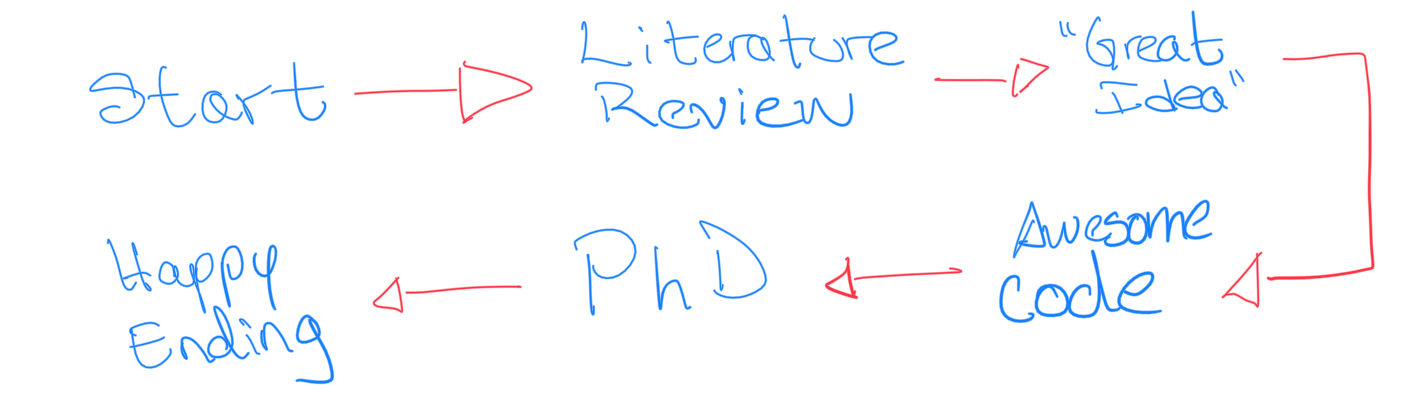 Start
Literature
Review
"Great
Idea"
Awesome
Code
PhD
Happy
Ending